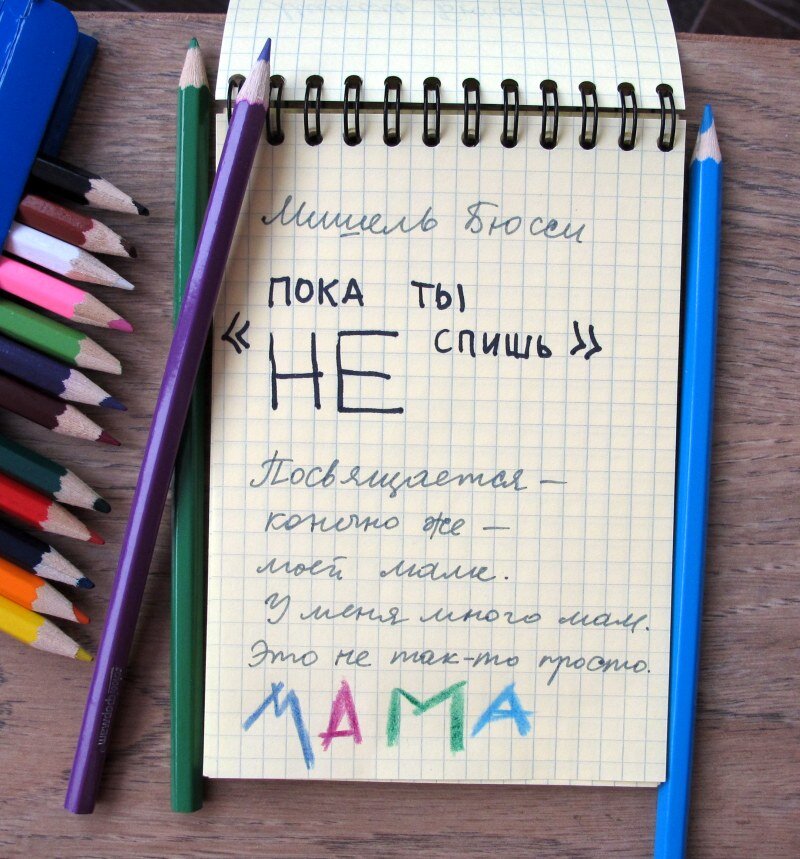 Мишель Бюсси
ПОКА ТЫ
« НЕ СПИШЬ »
Посвящается –
конечно же –
моей маме.
У меня много мам.
Это не так-то просто.
МАМА